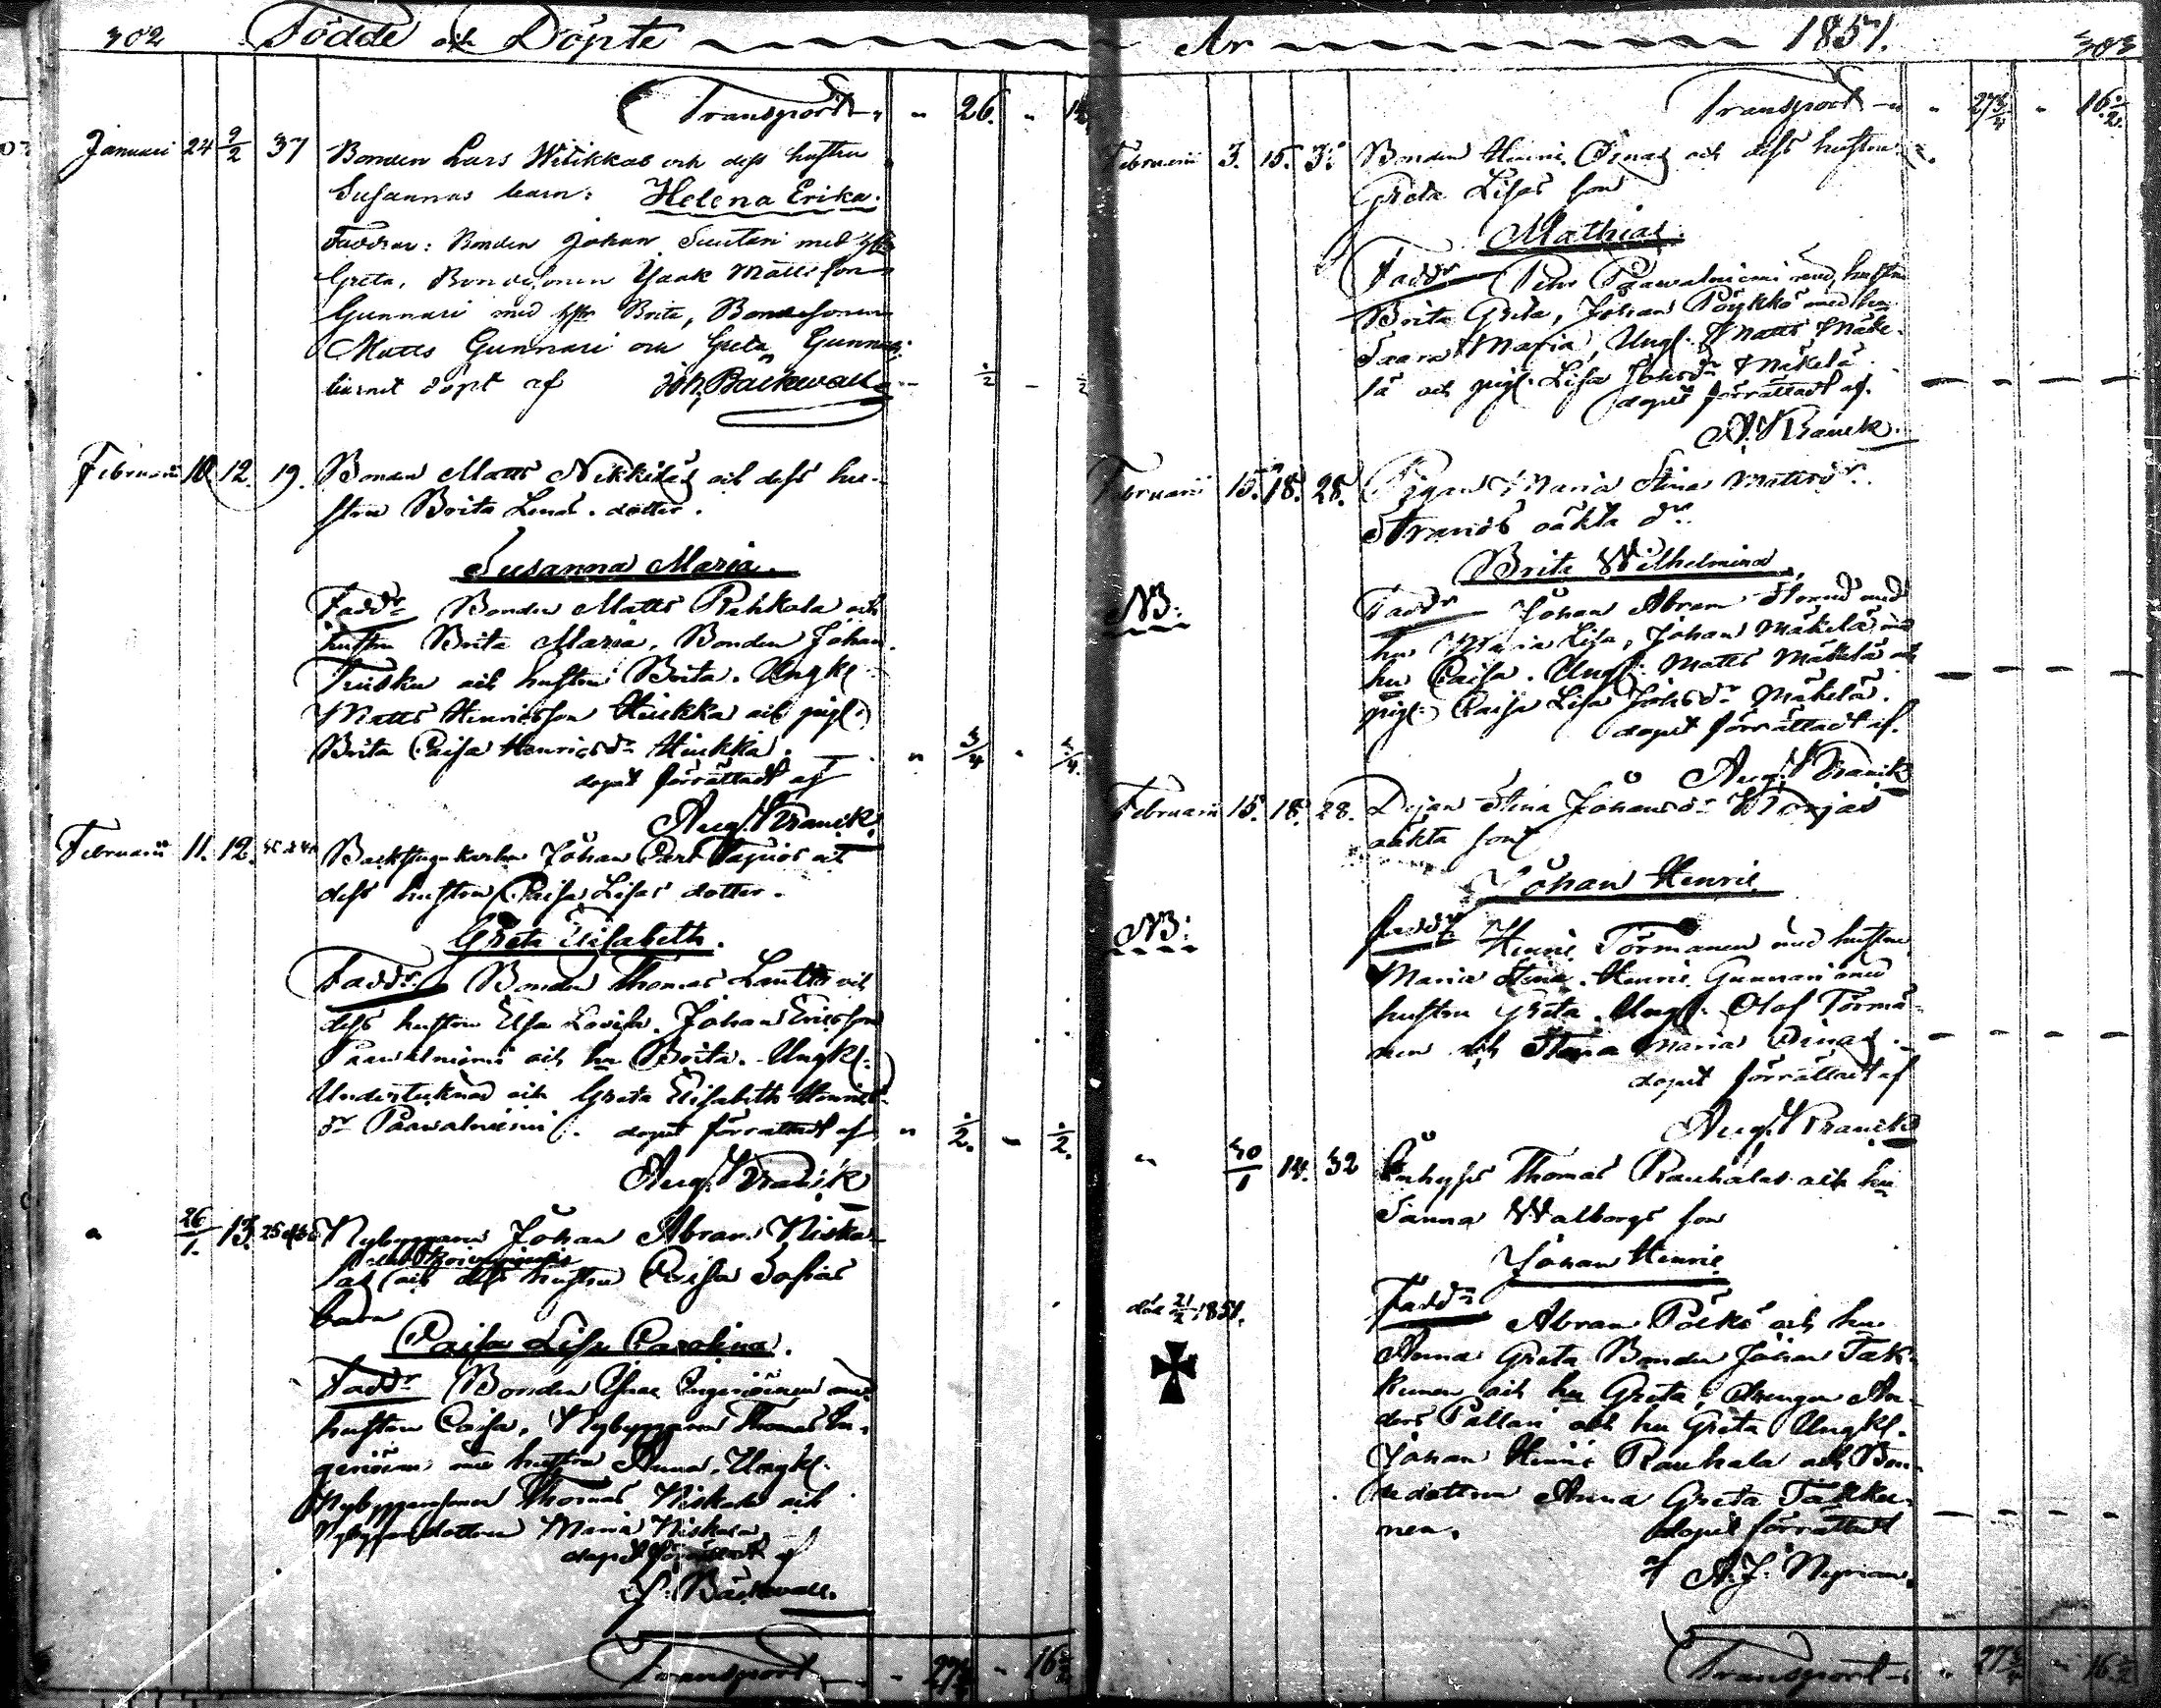 302 Födde och Döpte
Transport " 26. "
Januari 24 9/2 37 Bonden Lars Witikkas och dess hustru
Susannas barn: Helena Erika.
Faddrar: Bonden Johan Suutari med hstr
Greta, Bondesonen Isaak Matts son
Gunnari med hstr Brita, Bondesonen
Matts Gunnari och Greta Gunnari.
barnet döpt af Joh. Bäckwall 1/2
Februarii 10. 12. 19. Bonden Matts Nikkilas och dess hu-
strus Brita Lenas. dotter.
Susanna Maria.
Faddr Bonden Matts Rahkola och
hustru Brita Maria. Bonden Johan
Friska och hustru Brita. Ungk.
Matts Henricsson Hiukka och pig.
Brita Caisa Henricsdr Hiukka. " 3/4 " 3/4.
dopet förrättadt af
Aug. Kranck.
Februarii 11. 12. Backstugukarlen Johan Carl Tapios och
dess hustru Caisa Lisas dotter.
Greta Elisabeth.
Faddr. Bonden Thomas Lantto och
dess hustru Elsa Lovisa. Johan Ericsson
Paavalniemi och hu Brita. Ungk.
Undertecknad och Greta Elisabeth Henrics-
dr Paavalniemi. dopet förrättadt af " 1/2. " 1/2.
Aug. Kranck
" 26/1. 13. Nybyggaren Johan Abram Niska-
las och dess hustru Caisa Sofias
barn
Caisa Lisa Carolina.
Faddr Bonden Isac Ingeröinen med
hustru Caisa, Nybyggaren Thomas In-
geröinen med hustru Anna. Ungk.
Nybyggaresonen Thomas Niskala och
Nybyggaredottren Maria Niskala
dopet förrättadt af
J. Bäckwall.
Transport " 27 3/4 " 16 1/2
År 1851. 303
Transport " " 27 3/4 " 16 1/2.
Februarii 3. 15. Bonden Henric Oinas och dess hustru
Greta Lisas son
Mathias.
Faddr Pehr Paavalniemi med hustru
Brita Greta, Johan Pöykkö med hu
Saara Maria, Ungk. Matts Mäke-
lä och pig. Lisa Johsdr Mäkelä
dopet förrättadt af.
A. Kranck.
Februarii 15. 18. 28. Pigan Maria Stina Mattsdr.
Strands oäkta dr.
Brita Wilhelmina
NB: Faddr Johan Abram Strand med
hu Maria Lisa, Johan Mäkelä med
hu Caisa. Ungk. Matts Mäkelä och
pig. Caisa Lisa Johsdr Mäkelä.
dopet förrättadt af.
Aug. Kranck
Februarii 15. 18. 28. Dejan Stina Johansdr
oäkta son
Johan Henric
NB: Faddr Henric Törmänen med hustru
Maria Stina. Henric Gunnari med
hustru Greta. Ungk. Olof Törmä-
nen och Stina Maria Oinas.
dopet förrättadt af
Aug. Kranck
" 30/1 14. 32 Inhyses Thomas Rauhalas och hu
Sanna Walborgs son
Johan Henric
död 21/2 1851. Faddr Abram Pöckö och hu
Anna Greta Bonden Johan Tak-
kunen och hu Greta, Drengen An-
ders Pallari och hu Greta Ungk.
Johan Henric Rauhala och Bon-
dedottren Anna Greta Takku-
nen. dopet förrättadt
af A. J. Nyman.
Transport " " 27 3/4 " 16 1/2